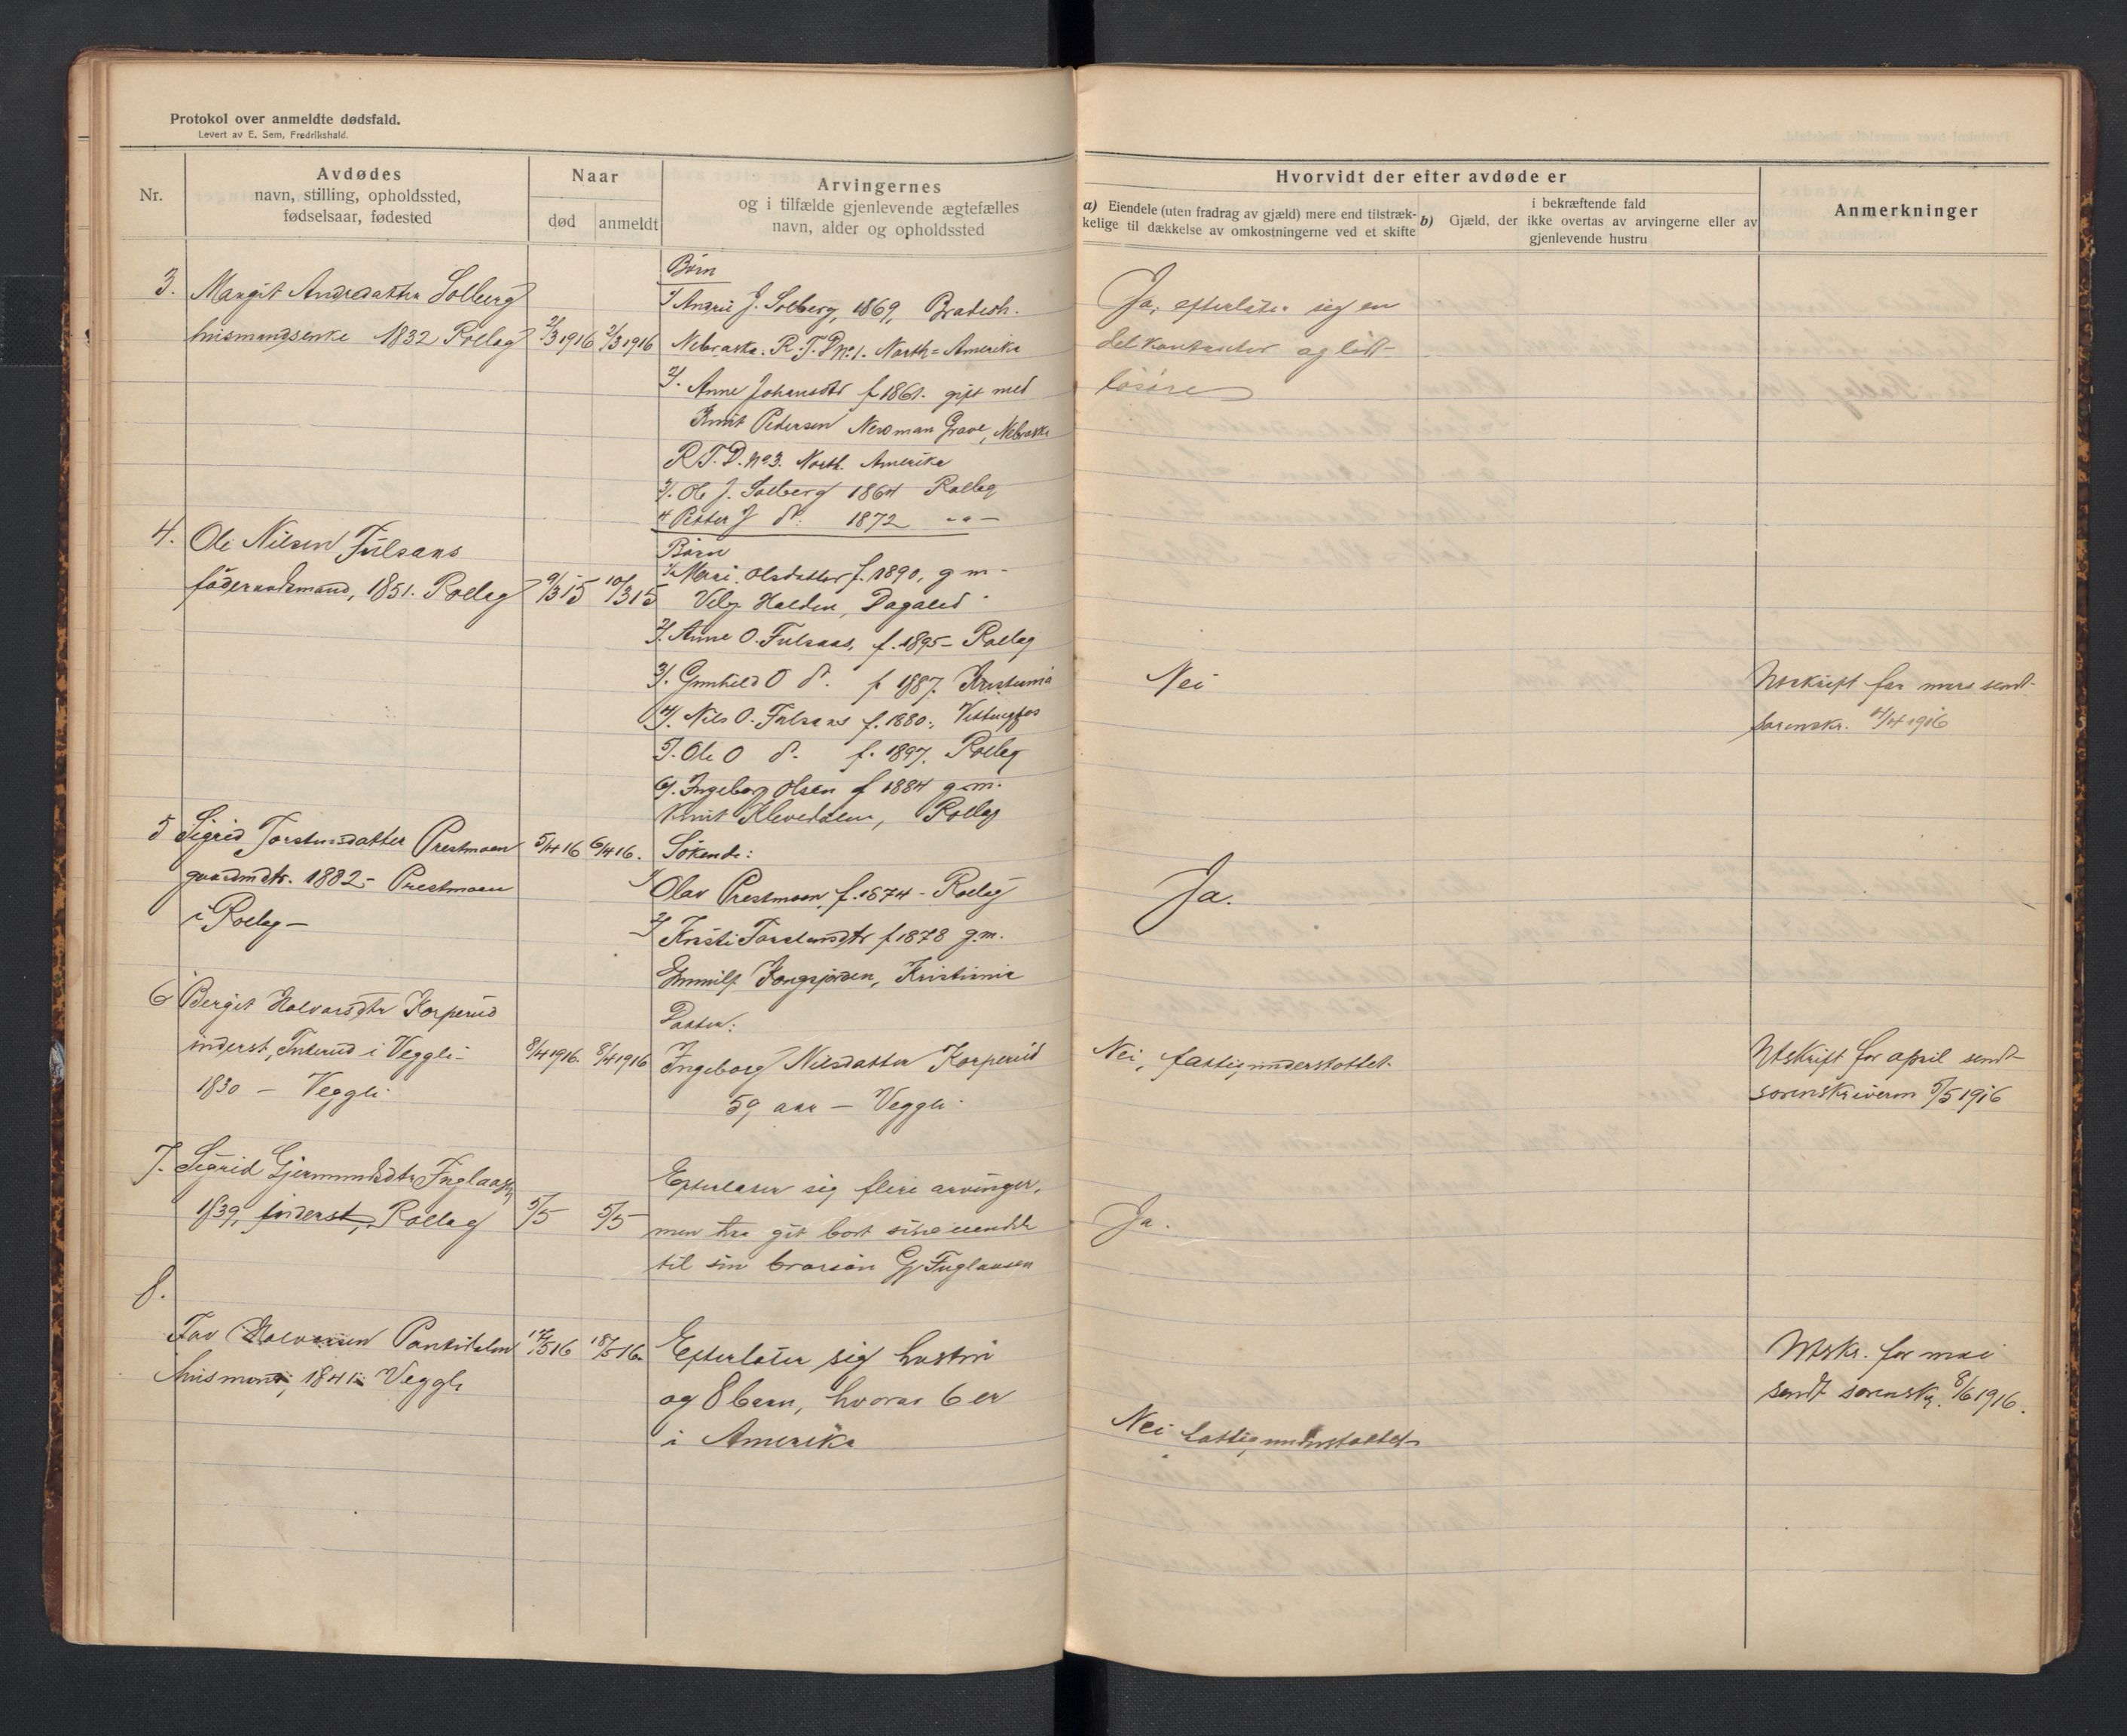 Protokol over anmeldte dødsfald.
Levert av E. Sem, Fredrikshald.
Nr.
Avdødes
navn, stilling, opholdssted,
fødselsaar, fødested
Naar
død
anmeldt
Arvingernes
og i tilfælde gjenlevende ægtefælles
navn, alder og opholdssted
3. Margit Andredatter Solberg
husmandsenke 1832 Rollag 2/3 1916 2/3 1916
Børn
1/ Andrie J. Solberg, 1869, Bradish.
Nebraska. R.F.D No 1. North=Amerika
2/. Anne Johansdtr f 1861. gift med
Knut Pedersen Newman Grove, Nebraska
R.F.D. No 3. North. Amerika
3/. Ole J. Solberg 1864 Rollag
4 Petter J do. 1872 -"-
4. Ole Nilsen Fulsaas
föderaadsmand, 1851. Rollag 9/3 15 10/3 15
Børn
1/ Mari Olsdatter f. 1890, g m-
Halden, Dagalid
2/. Anne O. Fulsaas, f. 1895- Rollag
3/. Gunhild O do. f 1887. Kristiania
4/. Nils O. Fulsaas f. 1880., Vittingfos
5/. Ole O do. f. 1897. Rollag
6/. Ingeborg Olsen f 1884 g.m.
Knut Klevedalen, Rollag
5 Sigrid Torstensdatter Prestmoen 5/4 16 6/4 16.
gaardmdtr. 1882- Prestmoen
i Rollag-
Søkende:
1/ Olav Prestmoen f. 1874 - Rollag
2/ Kristi Torstensdtr f 1878 g.m.
Kongsjorden, Kristiania
6 Berget Halvorsdtr Korperud
inderst, i Veggli- 8/4 1916. 8/4 1916
1830 - Veggli
Datter:
Ingeborg Nilsdatter Korperud
59 aar - Veggli
7. Sigrid Gjermundsdtr Fuglaasen
1839, inderst, Rollag 5/5 5/5
Efterlater sig flere arvinger,
men har git bort sine eiendele
til sin brorsøn G Fuglaasen
8.
Tov Halvorsen 17/5 16 18/5 16.
husmand, 1841 Veggli
Efterlater sig hustru
og 8 barn, hvorav 6 er
i Amerika
Hvorvidt der efter avdøde er
a) Eiendele (uten fradrag av gjæld) mere end tilstræk-
kelige til dækkelse av omkostningerne ved et skifte
i bekræftende fald
b) Gjæld, der ikke overtas av arvingerne eller av
gjenlevende hustru
Anmerkninger
Ja, efterlater sig en
del kontanter og litt
løsøre
Nei
Utskrift for mars sendt
sorenskr. 4/4 1916
Ja.
Nei, fattigunderstøttet.
Utskrift for april sendt
sorenskriveren 5/5 1916
Ja.
Utskr. for mai
sendt sorenskr. 8/6 1916.
Nei fattigunderstøttet